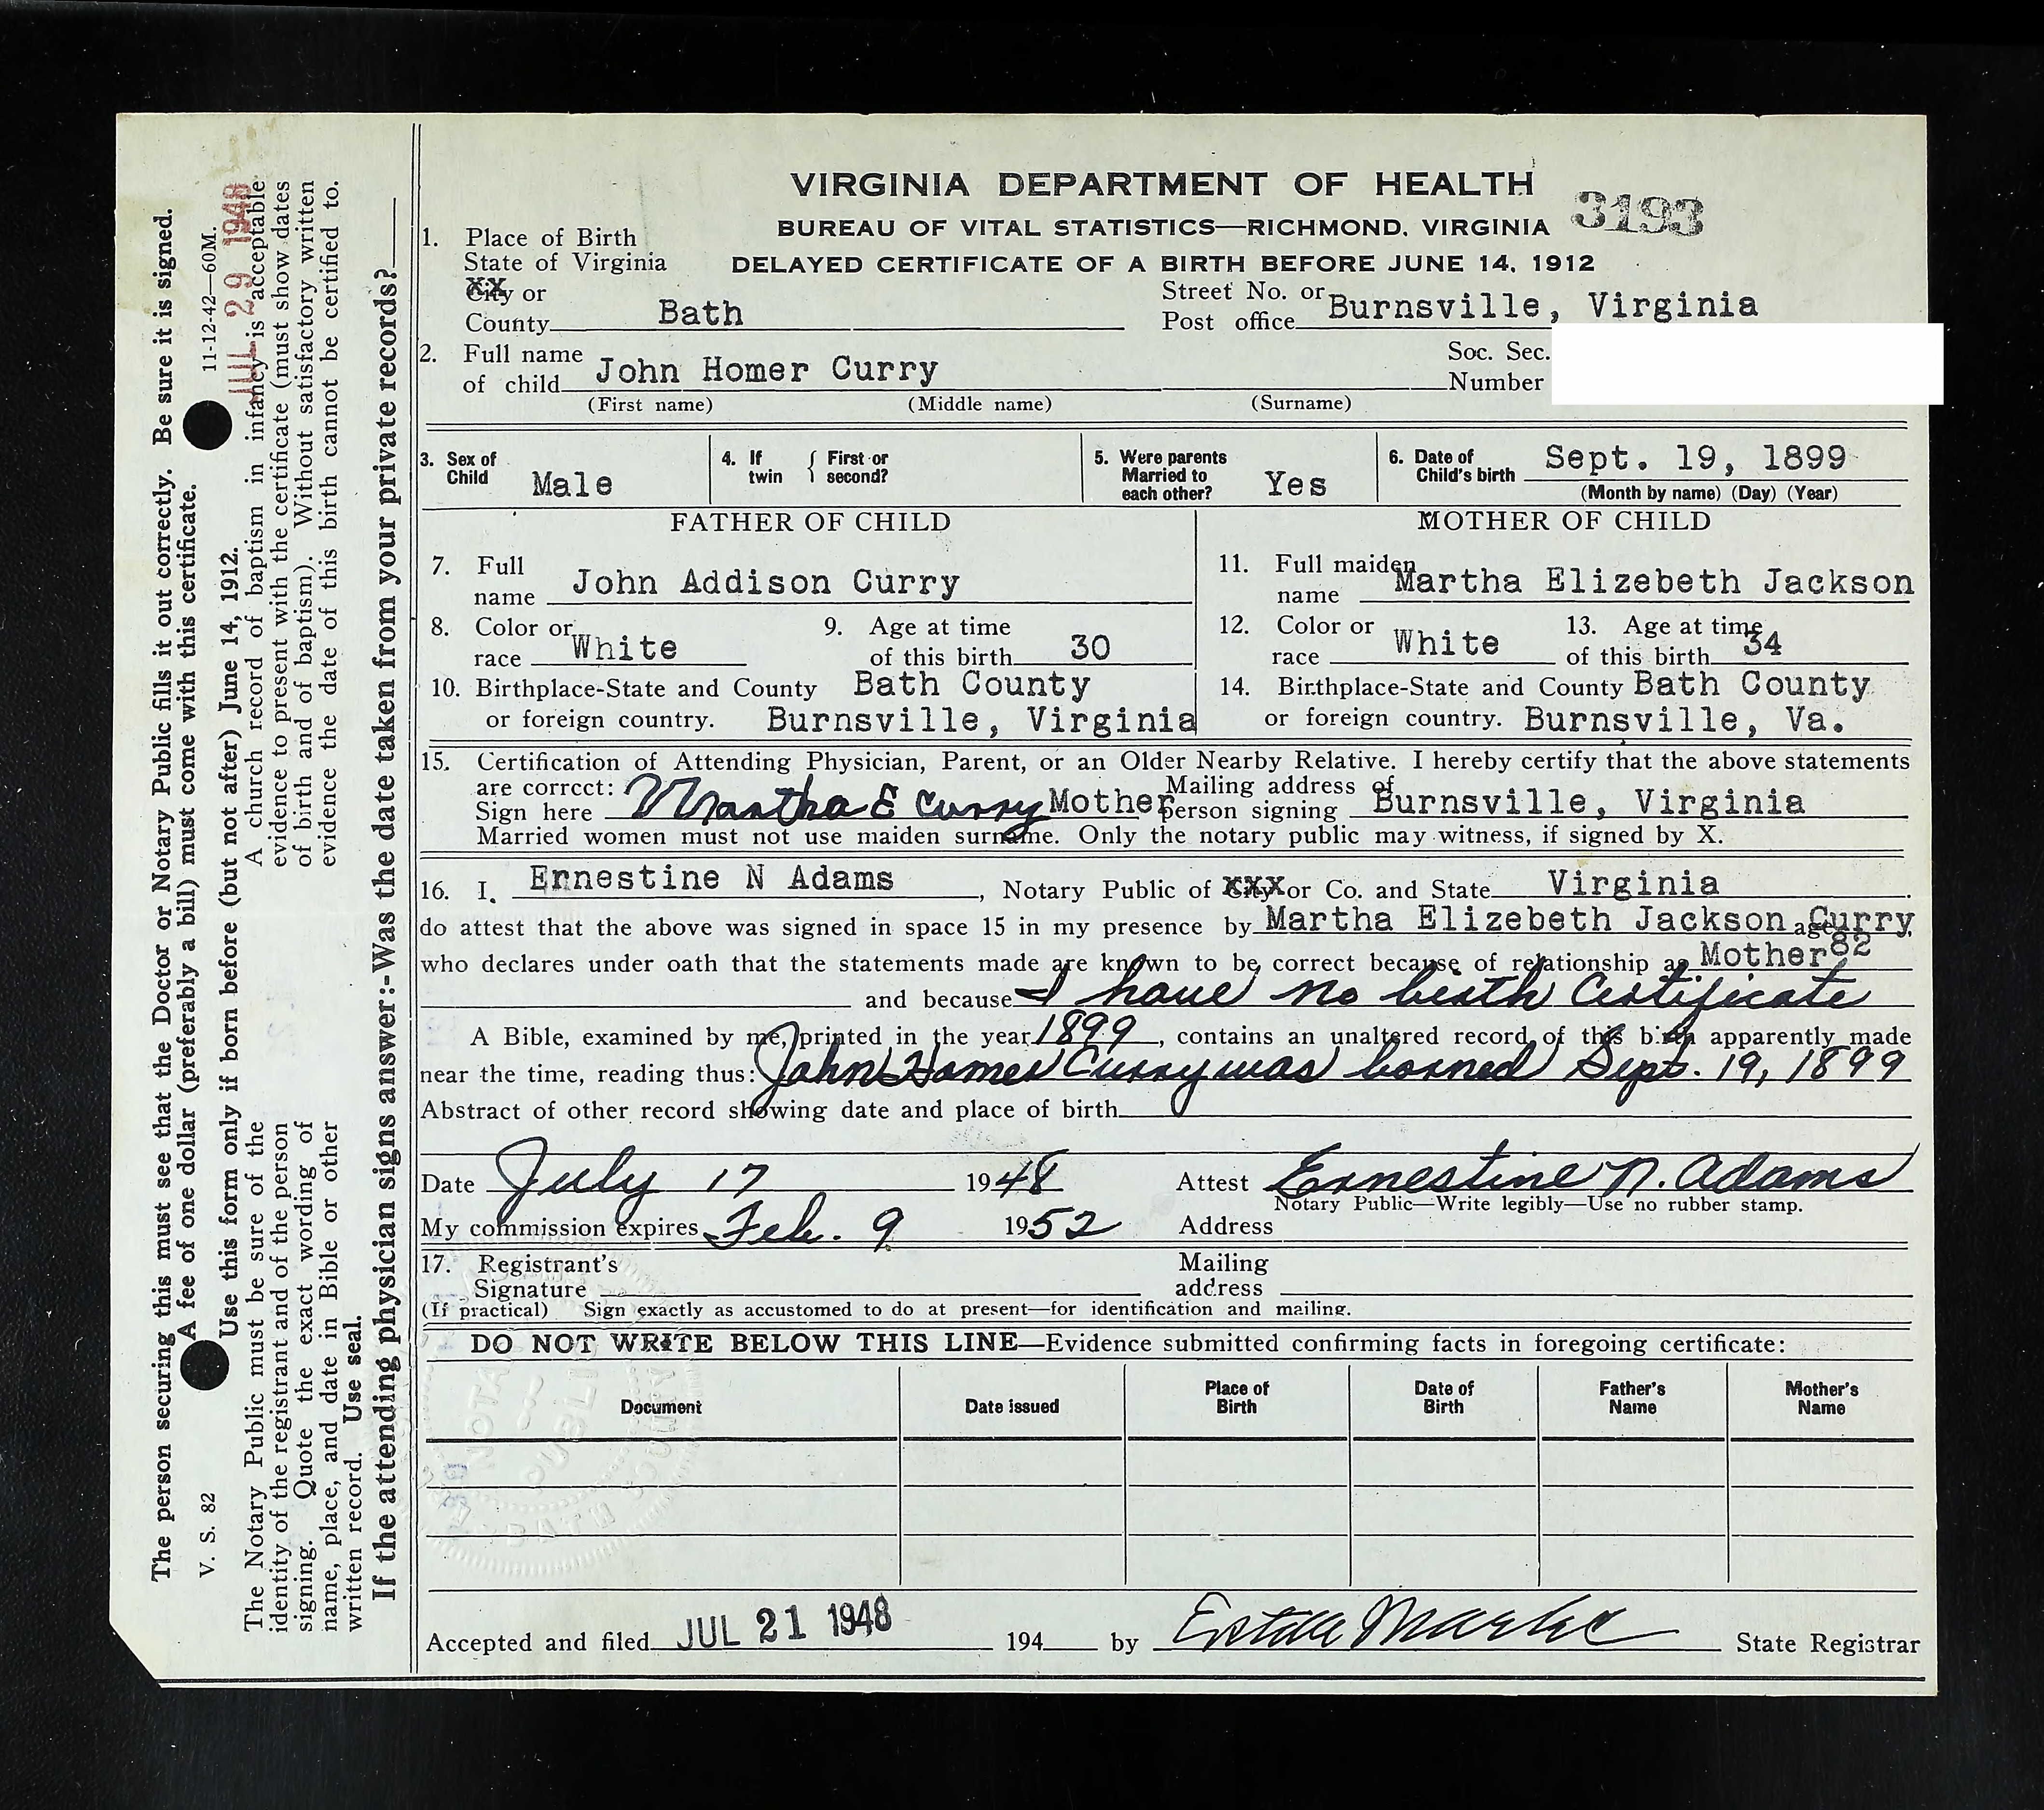 VIRGINIA DEPARTMENT OF HEALTH
3193
BUREAU OF VITAL STATISTICS—RICHMOND, VIRGINIA
DELAYED CERTIFICATE OF A BIRTH BEFORE JUNE 14, 1912
1. Place of Birth
State of Virginia
City or
County Bath
Street No. or
Post office Burnsville, Virginia
2. Full name
of child John Homer Curry
(First name) (Middle name) (Surname)
Soc. Sec.
Number
3. Sex of
Child Male
4. If
twin { First or
second?
5. Were parents
Married to
each other? Yes
6. Date of
Child's birth Sept. 19, 1899
(Month by name) (Day) (Year)
FATHER OF CHILD
7. Full
name John Addison Curry
8. Color or
race White
9. Age at time
of this birth 30
10. Birthplace-State and County Bath County
or foreign country. Burnsville, Virginia
MOTHER OF CHILD
11. Full maiden
name Martha Elizebeth Jackson
12. Color or
race White
13. Age at time
of this birth 34
14. Birthplace-State and County Bath County
or foreign country. Burnsville, Va.
15. Certification of Attending Physician, Parent, or an Older Nearby Relative. I hereby certify that the above statements
are correct:
Sign here Martha E Curry Mother
Mailing address of
person signing Burnsville, Virginia
Married women must not use maiden surname. Only the notary public may witness, if signed by X.
16. I. Ernestine N Adams, Notary Public of City or Co. and State Virginia.
do attest that the above was signed in space 15 in my presence by Martha Elizebeth Jackson Curry, age 82
who declares under oath that the statements made are known to be correct because of relationship as Mother
and because I have no birth Certificate
A Bible, examined by me, printed in the year 1899, contains an unaltered record of this birth apparently made
near the time, reading thus: John Homer Curry was borned Sept. 19, 1899
Abstract of other record showing date and place of birth
Date July 17 1948
Attest Ernestine N. Adams
Notary Public—Write legibly—Use no rubber stamp.
My commission expires Feb. 9 1952
Address
17. Registrant's
Signature
Mailing
address
(If practical) Sign exactly as accustomed to do at present—for identification and mailing.
DO NOT WRITE BELOW THIS LINE—Evidence submitted confirming facts in foregoing certificate:
Document
Date issued
Place of
Birth
Date of
Birth
Father's
Name
Mother's
Name
NOTARY
PUBLIC
BATH COUNTY
Accepted and filed JUL 21 1948 194 by Estelle Marks State Registrar
The person securing this must see that the Doctor or Notary Public fills it out correctly. Be sure it is signed.
A fee of one dollar (preferably a bill) must come with this certificate.
V. S. 82
11-12-42—60M.
JUL 29 1948
Use this form only if born before (but not after) June 14, 1912.
The Notary Public must be sure of the
identity of the registrant and of the person
signing. Quote the exact wording of
name, place, and date in Bible or other
written record. Use seal.
A church record of baptism in infancy is acceptable
evidence to present with the certificate (must show dates
of birth and of baptism). Without satisfactory written
evidence the date of this birth cannot be certified to.
If the attending physician signs answer:-Was the date taken from your private records?